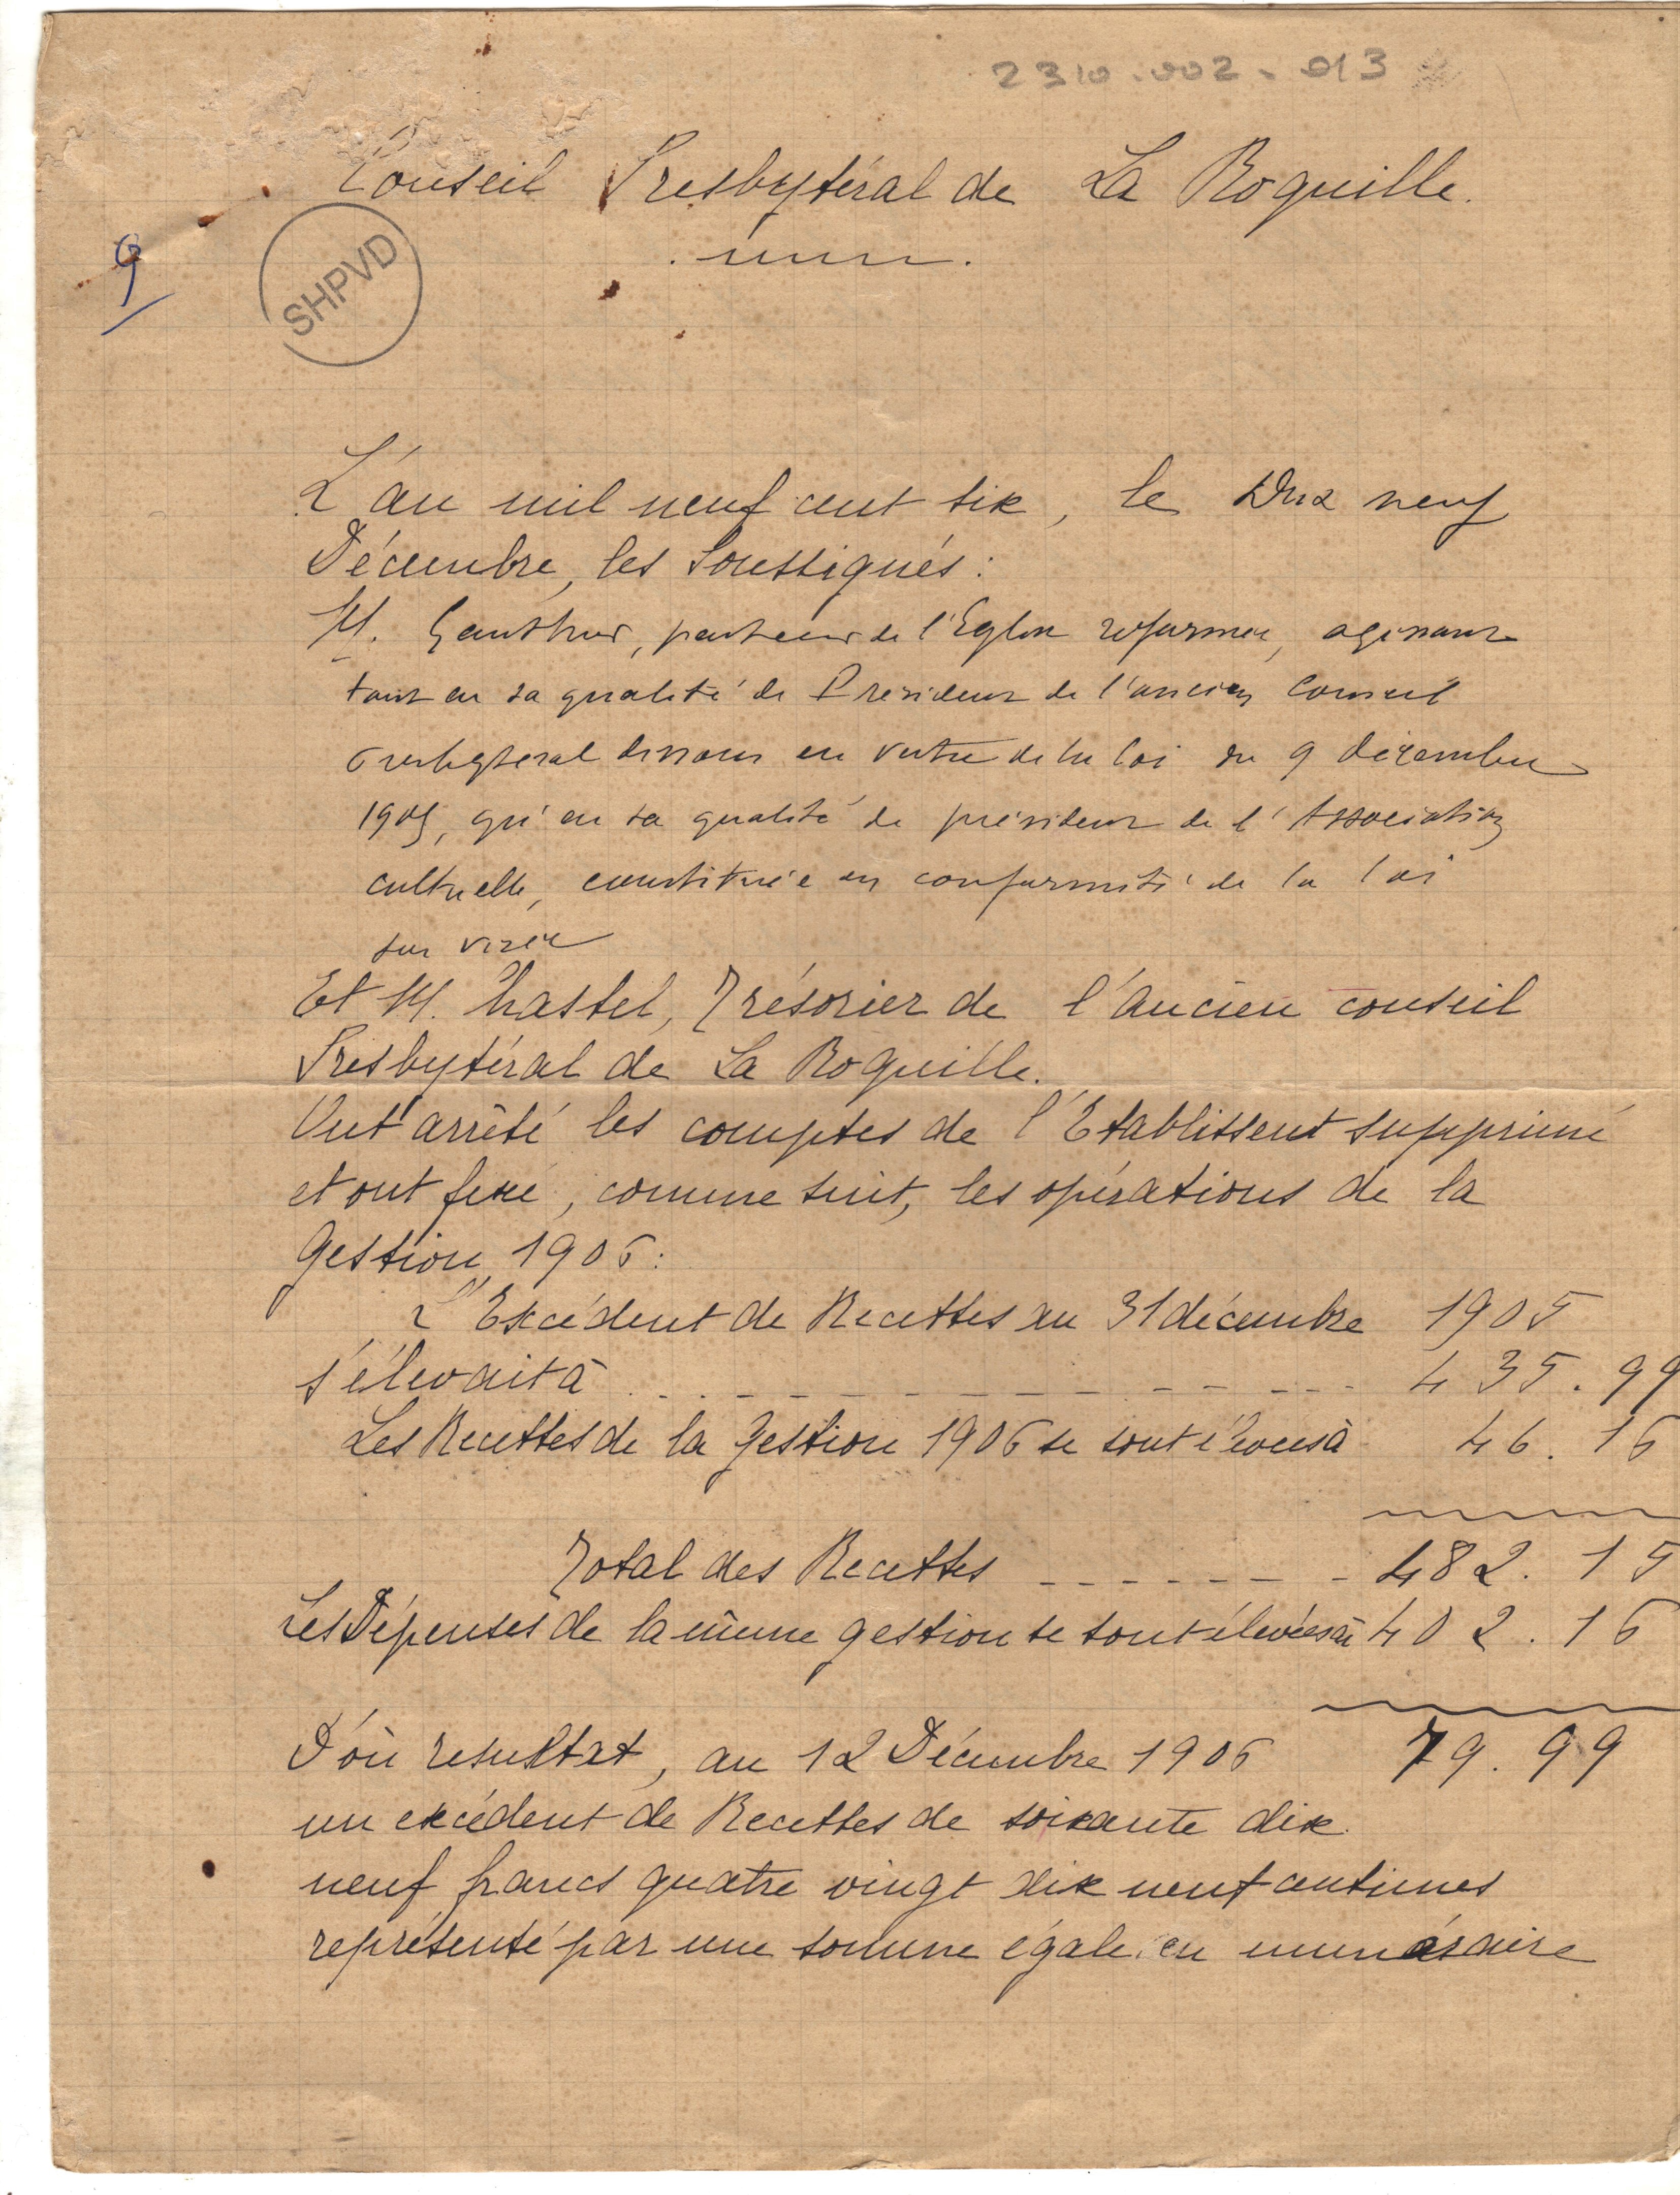 2310.002.013
Conseil Presbytéral de La Roquille.
9
SHPVD
L'an mil neuf cent six, le Dix neuf
Décembre, les soussignés :
M. Gauthier, pasteur de l'Eglise reformée, agissant
tant en sa qualité de Président de l'ancien Conseil
presbyteral dissous en vertu de la loi du 9 décembre
1905, qu'en sa qualité de président de l'Association
cultuelle, constituée en conformité de la loi
sus visée
Et M. Chastel, Trésorier de l'ancien conseil
Presbytéral de La Roquille.
Ont arrêté les comptes de l'Etablissent supprimé
et ont fixé, comme suit, les opérations de la
Gestion 1906 :
L'Excédent de Recettes au 31 décembre 1905
s'élevait à 435.99
Les Recettes de la Gestion 1906 se sont élevées à 46.16
Total des Recettes 482.15
Les Dépenses de la même gestion se sont élevées à 402.16
D'où resultat, au 12 Décembre 1906 79.99
un excédent de Recettes de soixante dix
neuf francs quatre vingt dix neuf centimes
représenté par une somme égale en numéraire